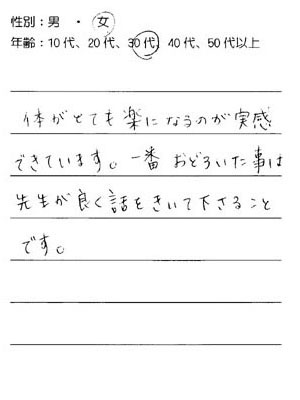 性別：男 ・ 女
年齢：10代、20代、30代、40代、50代以上
体がとても楽になるのが実感
できています。一番 おどろいた事は
先生が良く話をきいて下さること
です。